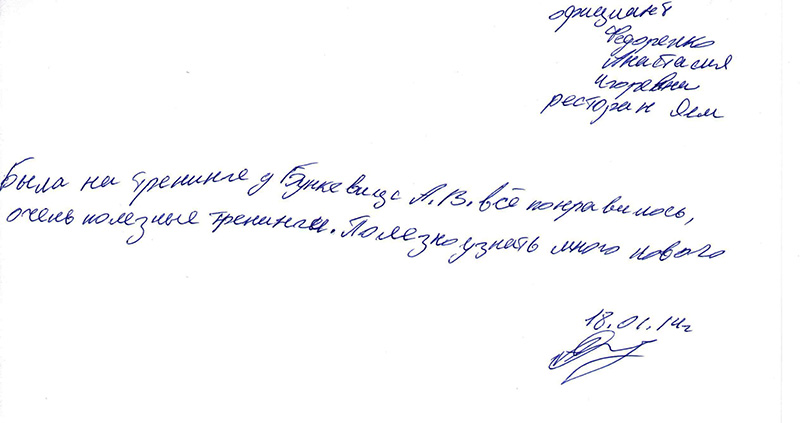 официант
Федоренко
Анастасия
Игоревна
ресторан Оям
Была на тренинге у Бункевича А.В. всё понравилось,
очень полезные тренинги. Полезно узнать много нового
18.01.14г